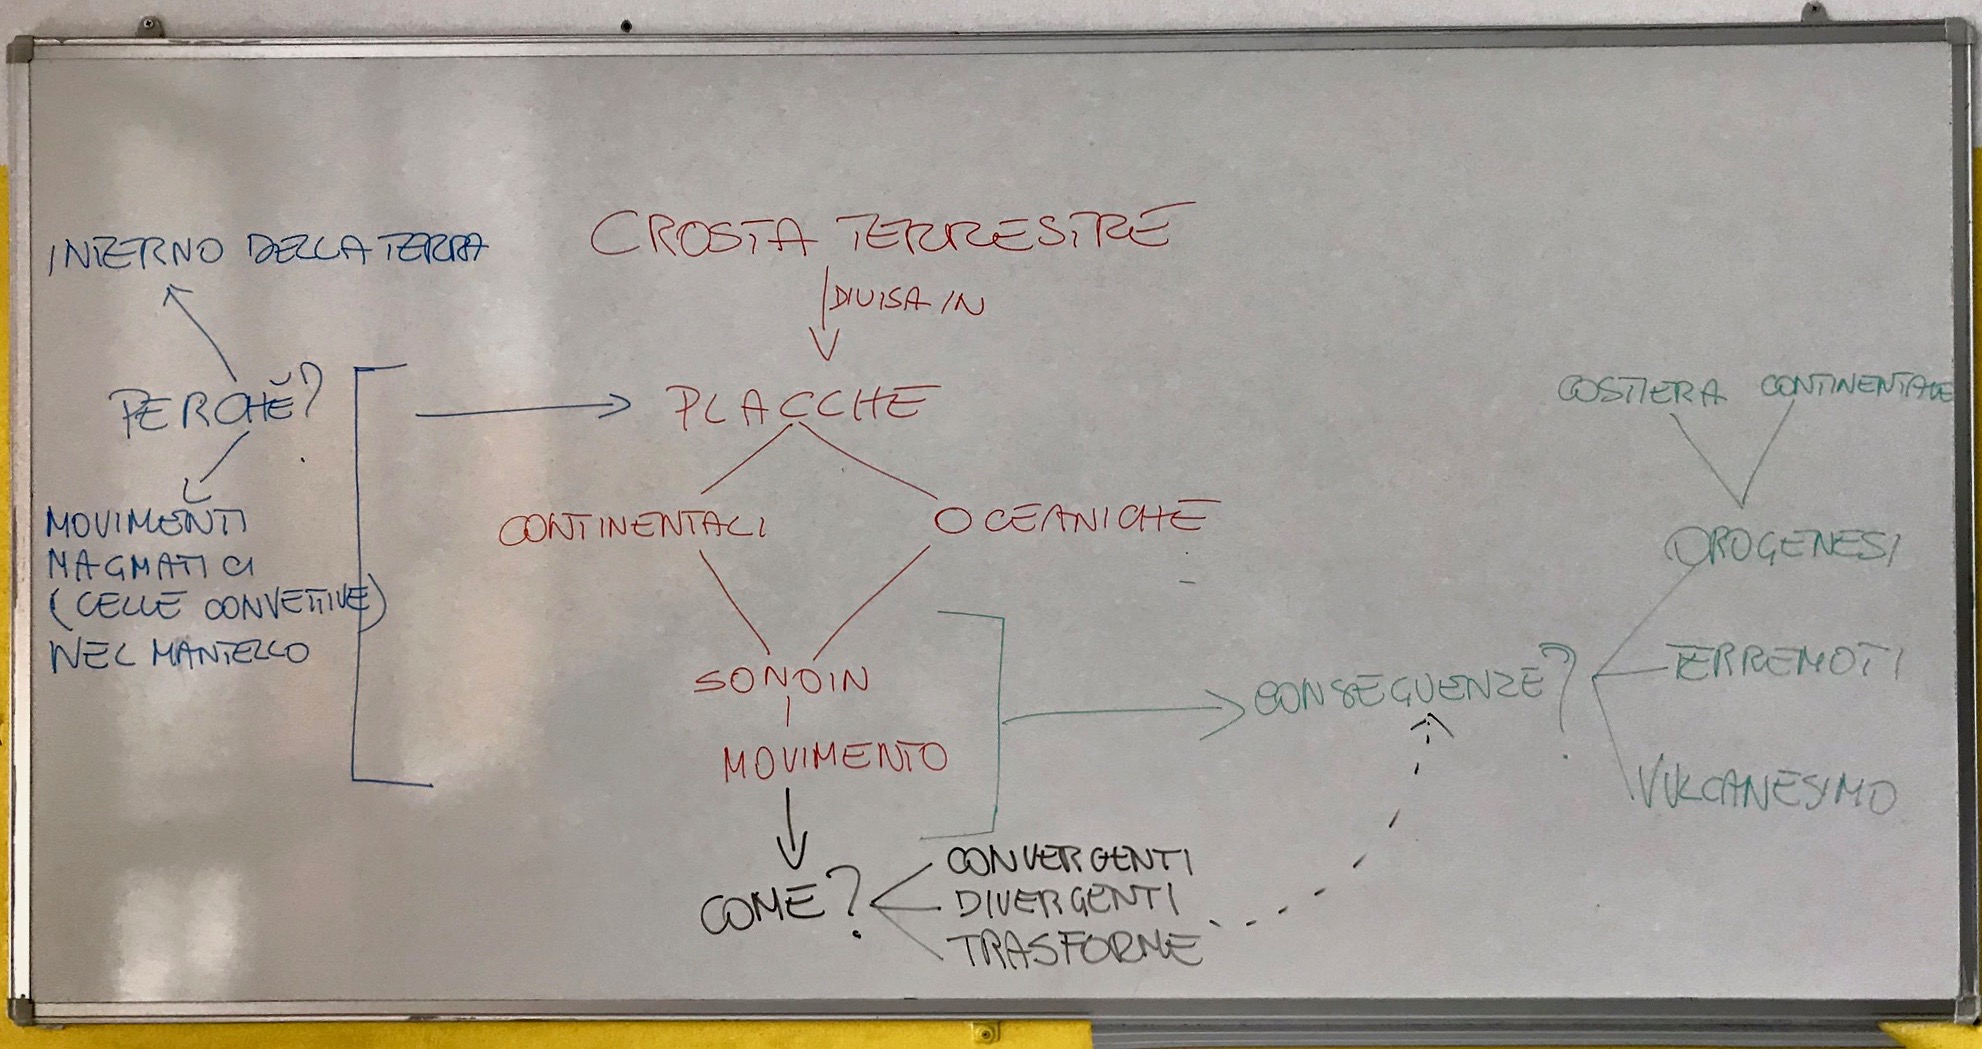 CROSTA TERRESTRE
DIVISA IN
PLACCHE
CONTINENTALI
OCEANICHE
SONO IN
MOVIMENTO
COME?
CONVERGENTI
DIVERGENTI
TRASFORME
INTERNO DELLA TERRA
PERCHÈ?
MOVIMENTI
MAGMATICI
(CELLE CONVETTIVE)
NEL MANTELLO
CONSEGUENZE?
COSTIERA
CONTINENTALE
OROGENESI
TERREMOTI
VULCANESIMO